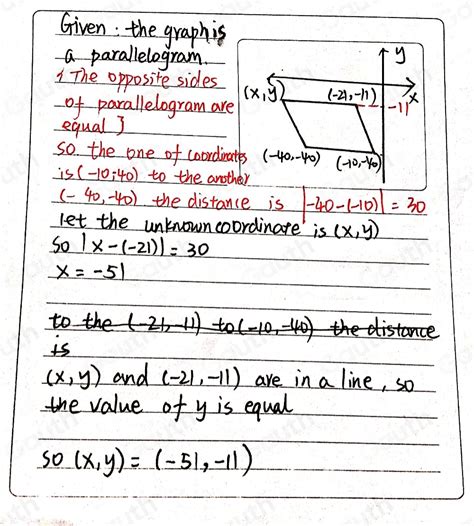 Given : the graph is
a parallelogram.
{ The opposite sides
of parallelogram are
equal }
so the one of coordinates
is (-10,-40) to the another
(-40,-40) the distance is |-40-(-10)| = 30
let the unknown coordinate is (x,y)
so |x-(-21)| = 30
x = -51
to the (-21,-11) to (-10,-40) the distance
is
(x,y) and (-21,-11) are in a line, so
the value of y is equal
so (x,y) = (-51,-11)
y
(x,y)
(-21,-11)
x
-11
(-40,-40)
(-10,-40)